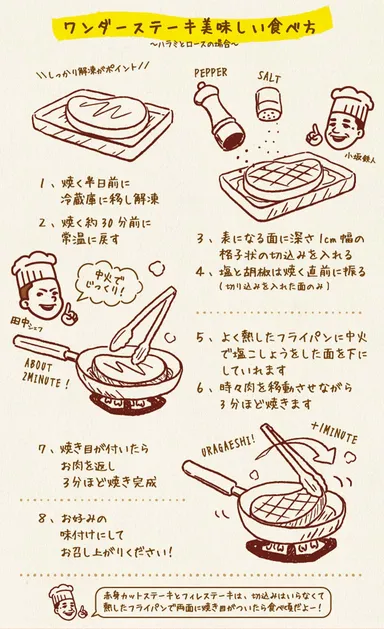 ワンダーステーキ美味しい食べ方
〜ハラミとロースの場合〜
\\しっかり解凍がポイント//
PEPPER
SALT
小坂鉄人
1、焼く半日前に
冷蔵庫に移し解凍
2、焼く約30分前に
常温に戻す
3、表になる面に深さ1cm幅の
格子状の切込みを入れる
4、塩と胡椒は焼く直前に振る
(切り込みを入れた面のみ)
中火で
じっくり!
田中シェフ
ABOUT
2MINUTE!
5、よく熱したフライパンに中火
で塩こしょうをした面を下に
していれます
6、時々肉を移動させながら
3分ほど焼きます
7、焼き目が付いたら
お肉を返し
3分ほど焼き完成
URAGAESHI!
+1MINUTE
8、お好みの
味付けにして
お召し上がりください!
赤身カットステーキとフィレステーキは、切込みはいらなくて
熱したフライパンで両面に焼き目がついたら食べ頃だよー!